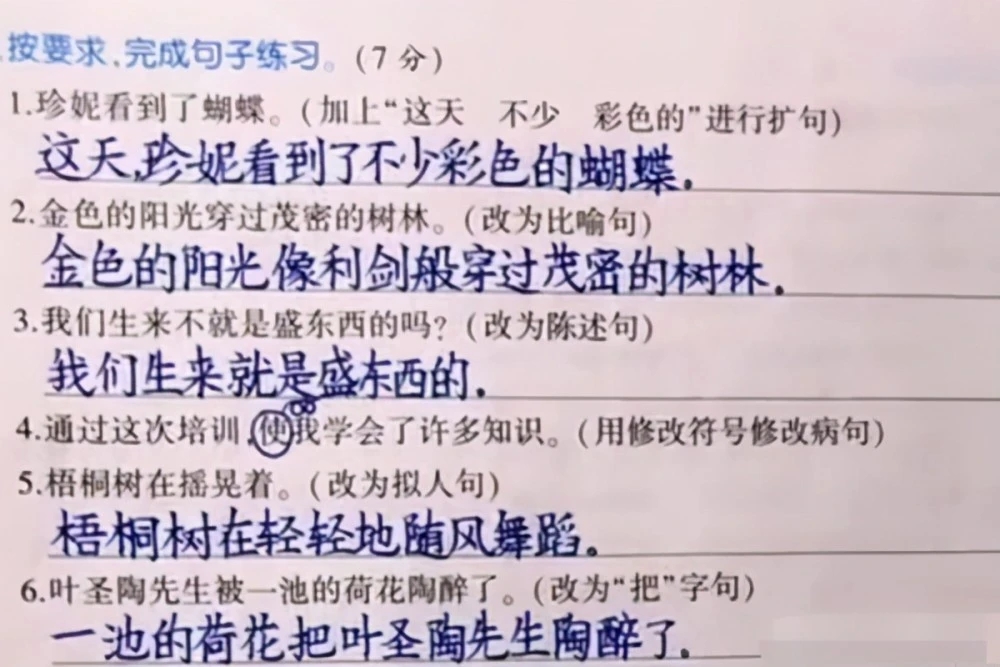 按要求,完成句子练习。(7分)
1.珍妮看到了蝴蝶。(加上“这天 不少 彩色的”进行扩句)
这天,珍妮看到了不少彩色的蝴蝶.
2.金色的阳光穿过茂密的树林。(改为比喻句)
金色的阳光像利剑般穿过茂密的树林.
3.我们生来不就是盛东西的吗?(改为陈述句)
我们生来就是盛东西的.
4.通过这次培训,使我学会了许多知识。(用修改符号修改病句)
5.梧桐树在摇晃着。(改为拟人句)
梧桐树在轻轻地随风舞蹈。
6.叶圣陶先生被一池的荷花陶醉了。(改为“把”字句)
一池的荷花把叶圣陶先生陶醉了.